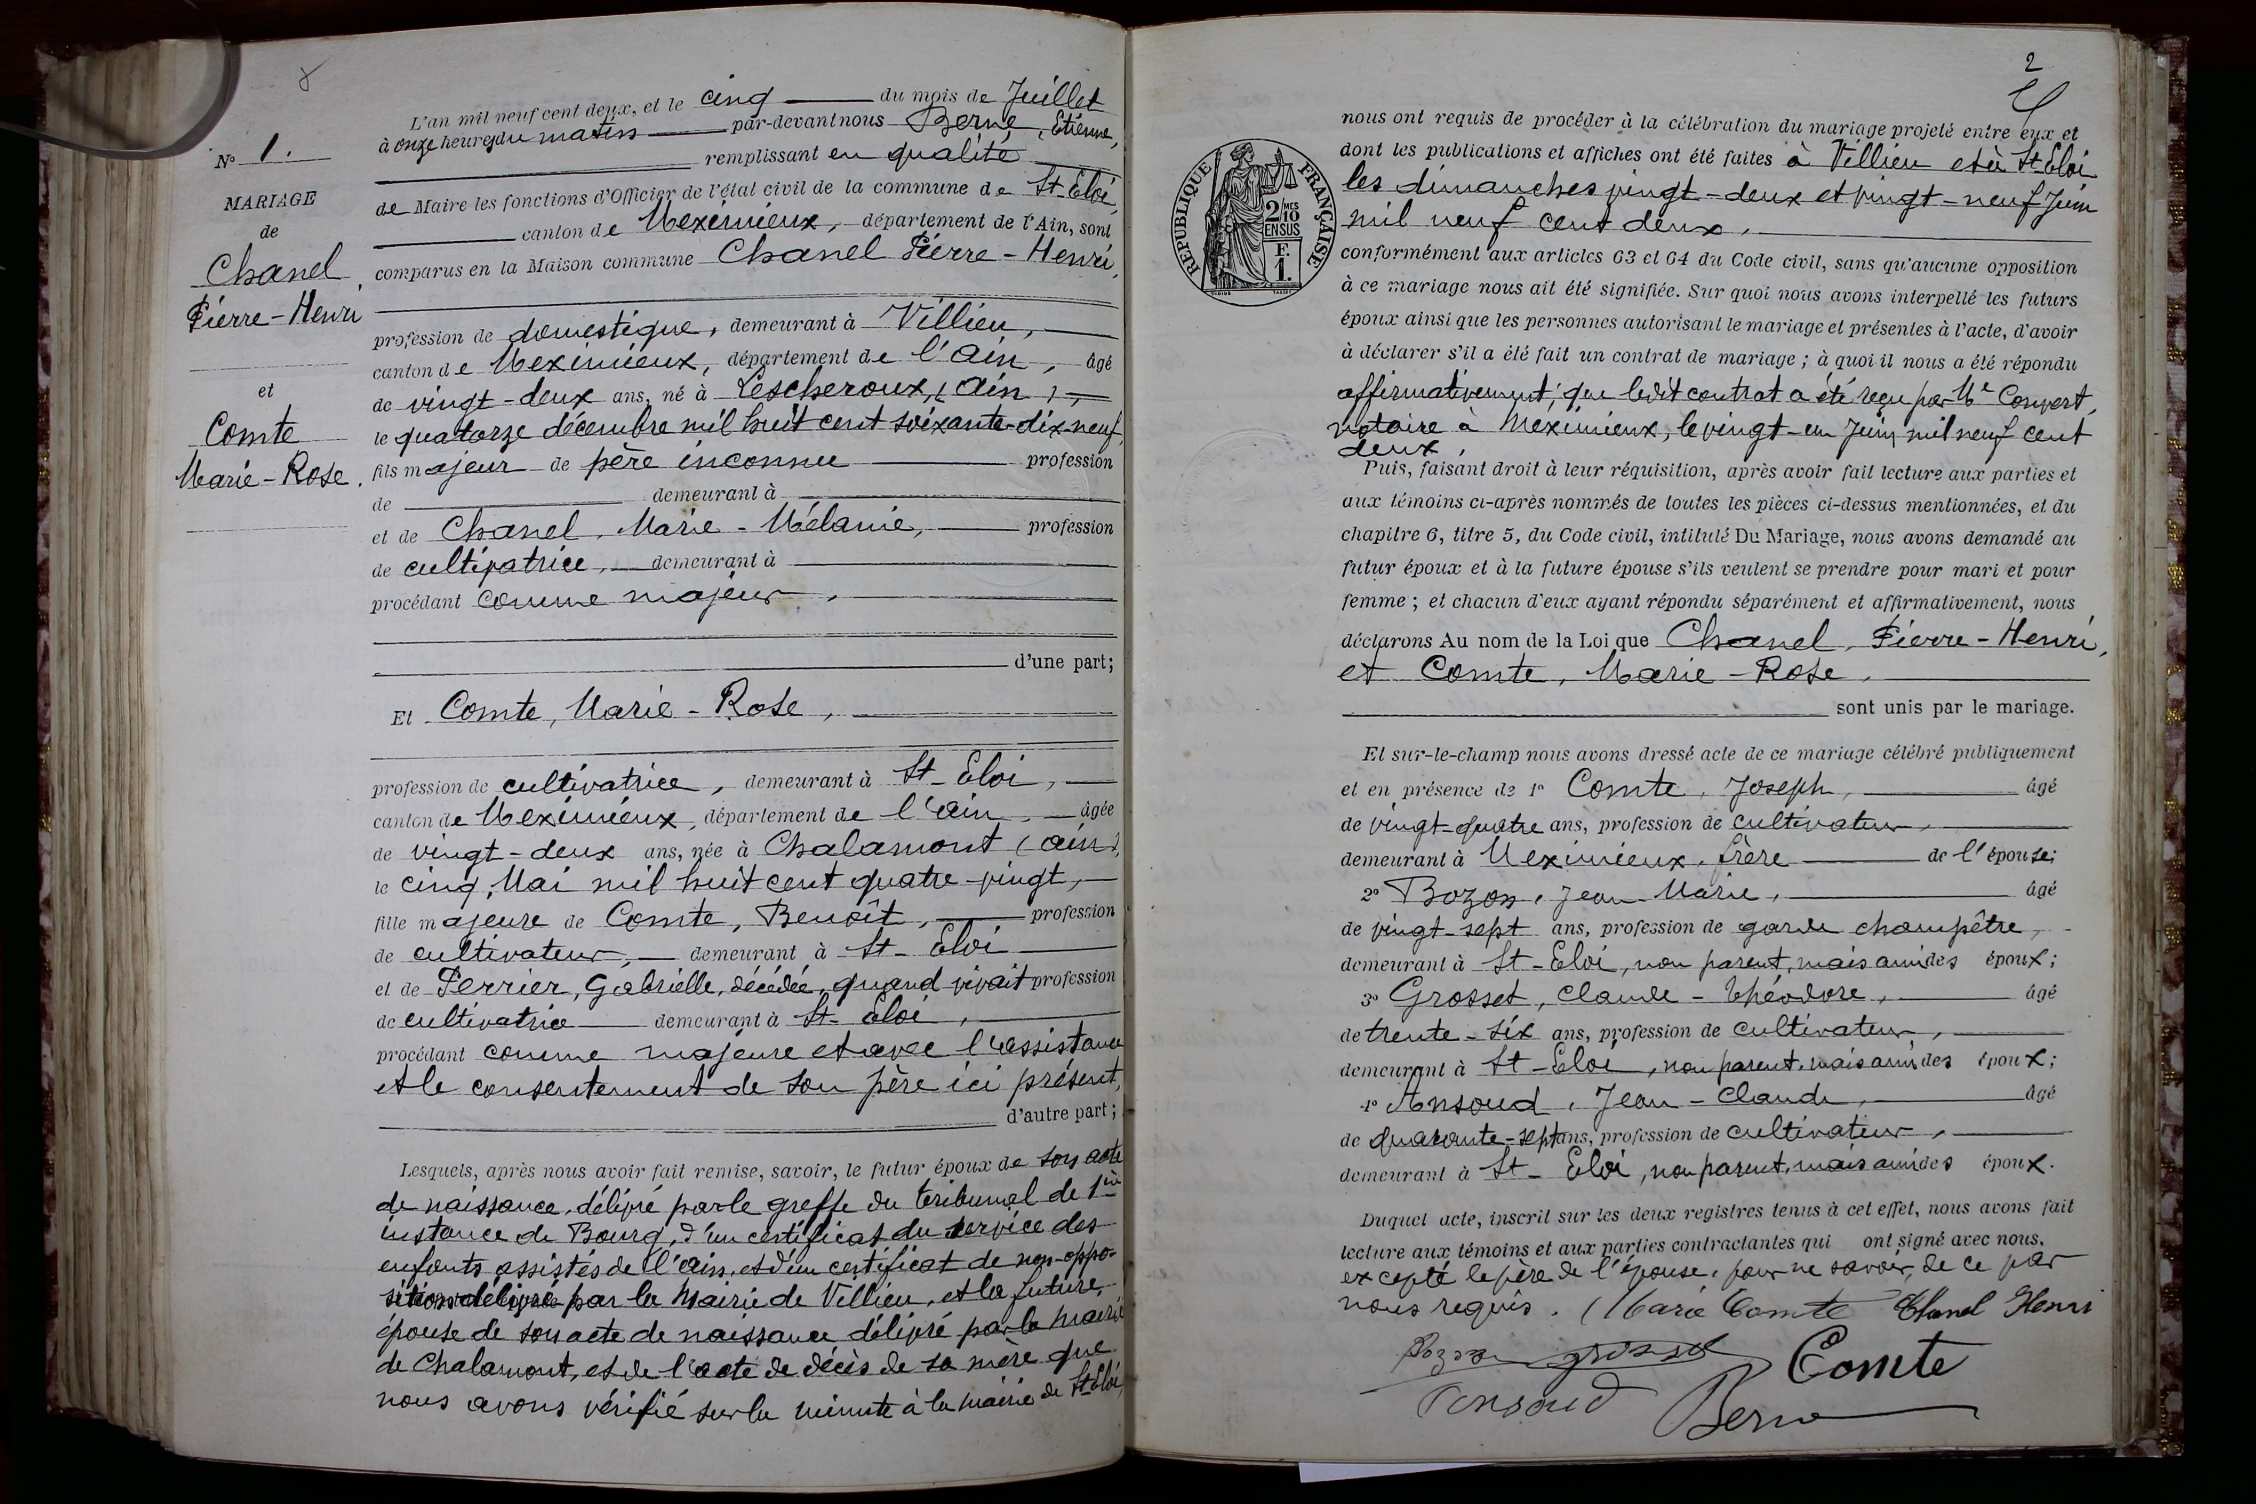 8
L'an mil neuf cent deux, et le cinq du mois de Juillet
à onze heures du matin par-devant nous Berne, Etienne,
remplissant en qualité
de Maire les fonctions d'Officier de l'état civil de la commune de St-Eloi,
canton de Meximieux, département de l'Ain, sont
comparus en la Maison commune Chanel Pierre-Henri,
profession de domestique, demeurant à Villieu,
canton de Meximieux, département de l'Ain, âgé
de vingt-deux ans, né à Lescheroux, (Ain),
le quatorze décembre mil huit cent soixante-dix-neuf,
fils majeur de père inconnu profession
de demeurant à
et de Chanel, Marie-Mélanie, profession
de cultivatrice, demeurant à
procédant comme majeur,
d'une part;
Et Comte, Marie-Rose,
profession de cultivatrice, demeurant à St-Eloi,
canton de Meximieux, département de l'Ain, âgée
de vingt-deux ans, née à Chalamont (Ain),
le cinq Mai mil huit cent quatre-vingt,
fille majeure de Comte, Benoît, profession
de cultivateur, demeurant à St-Eloi
et de Perrier, Gabrielle, décédée, quand vivait profession
de cultivatrice demeurant à St-Eloi,
procédant comme majeure et avec l'assistance
et le consentement de son père ici présent,
d'autre part;
Lesquels, après nous avoir fait remise, savoir, le futur époux de son acte
de naissance, délivré par le greffe du tribunal de 1ère
instance de Bourg, d'un certificat du service des
enfants assistés de l'Ain, et d'un certificat de non-oppo-
sition délivré par la Mairie de Villieu, et la future
épouse de son acte de naissance délivré par la mairie
de Chalamont, et de l'acte de décès de sa mère que
nous avons vérifié sur la minute à la mairie de St-Eloi,
No 1.
MARIAGE
de
Chanel,
Pierre-Henri
et
Comte
Marie-Rose.
2
nous ont requis de procéder à la célébration du mariage projeté entre eux et
dont les publications et affiches ont été faites à Villieu et à St-Eloi
les dimanches vingt-deux et vingt-neuf Juin
mil neuf cent deux,
conformément aux articles 63 et 64 du Code civil, sans qu'aucune opposition
à ce mariage nous ait été signifiée. Sur quoi nous avons interpellé les futurs
époux ainsi que les personnes autorisant le mariage et présentes à l'acte, d'avoir
à déclarer s'il a été fait un contrat de mariage; à quoi il nous a été répondu
affirmativement; que ledit contrat a été reçu par Me Convert,
notaire à Meximieux, le vingt-un Juin mil neuf cent
deux,
Puis, faisant droit à leur réquisition, après avoir fait lecture aux parties et
aux témoins ci-après nommés de toutes les pièces ci-dessus mentionnées, et du
chapitre 6, titre 5, du Code civil, intitulé Du Mariage, nous avons demandé au
futur époux et à la future épouse s'ils veulent se prendre pour mari et pour
femme; et chacun d'eux ayant répondu séparément et affirmativement, nous
déclarons Au nom de la Loi que Chanel, Pierre-Henri,
et Comte, Marie-Rose,
sont unis par le mariage.
Et sur-le-champ nous avons dressé acte de ce mariage célébré publiquement
et en présence de 1o Comte, Joseph, âgé
de vingt-quatre ans, profession de cultivateur,
demeurant à Meximieux, frère de l'épouse;
2o Bozon, Jean-Marie, âgé
de vingt-sept ans, profession de garde champêtre,
demeurant à St-Eloi, non parent, mais ami des époux;
3o Grosset, Claude-Théodore, âgé
de trente-six ans, profession de cultivateur,
demeurant à St-Eloi, non parent, mais ami des époux;
4o Ansoud, Jean-Claude, âgé
de quarante-sept ans, profession de cultivateur,
demeurant à St-Eloi, non parent, mais ami des époux.
Duquel acte, inscrit sur les deux registres tenus à cet effet, nous avons fait
lecture aux témoins et aux parties contractantes qui ont signé avec nous,
excepté le père de l'épouse, pour ne savoir, de ce par
nous requis. Marie Comte Chanel Henri
Bozon Grosset Comte
Ansoud Berne
RÉPUBLIQUE FRANÇAISE
2/10 MES
EN SUS
F.
1.